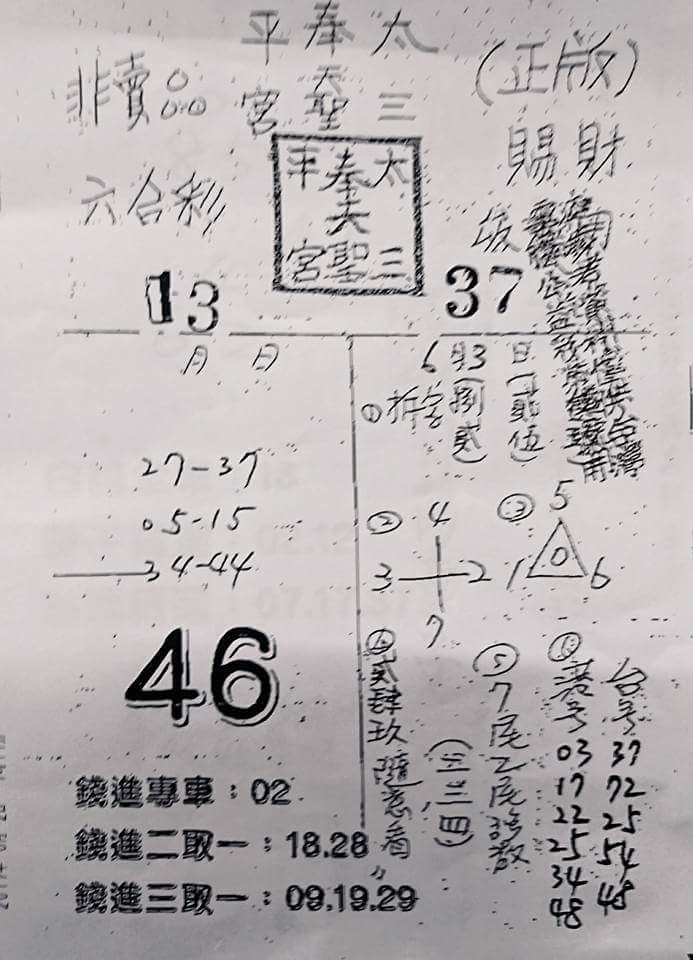 太三
奉天聖
平宮
(正版)
非賣品
財
賜
六合彩
太三
奉天聖
平宮
13
37
月 日
6月3日
①拆字(捌貳)(一貳伍)
27-37
05-15
34-44
② 4 3 2 7
③ 5 1 0 6
46
④貳肆玖隨意看
⑤7尾乙尾
(三三四)
⑥
港号 台号
03 37
17 72
22 25
25 54
34 48
48
錢進專車：02
錢進二取一：18.28
錢進三取一：09.19.29